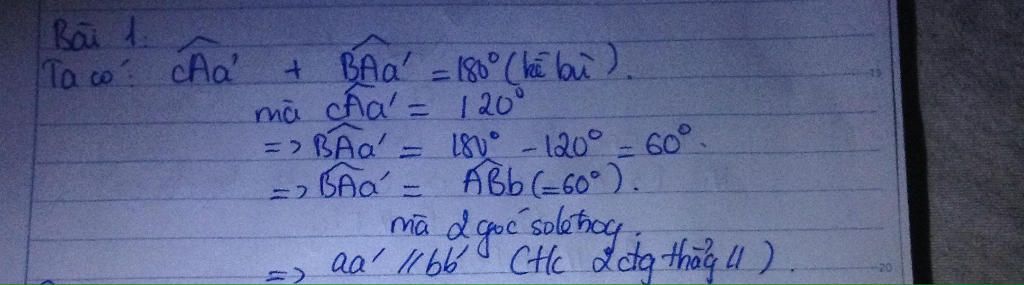 Bài 1.
Ta có: cAa' + BAa' = 180° (kề bù).
mà cAa' = 120°
=> BAa' = 180° - 120° = 60°.
=> BAa' = ABb (=60°).
mà 2 góc sole trog.
=> aa' // bb' (t/c 2 đtg thẳg //).
15
20